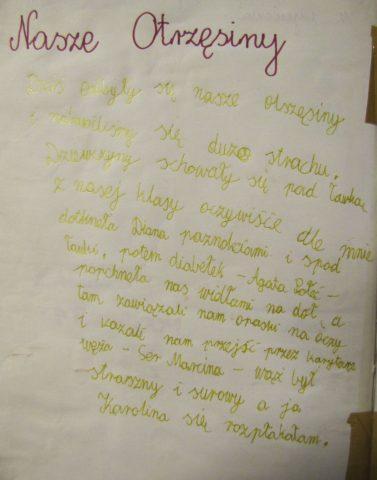 Nasze Otrzęsiny
Dziś odbyły się nasze otszęsiny
i najedliśmy się dużo strachu.
Dziewczyny schowały się pod ławką
z naszej klasy oczywiście dle mnie
dotknęła Diana paznokciami i spod
ławki, potem diabełek – Agata –
popchnęła nas widłami na dół, a
tam zawiązali nam opaski na oczy
i kazali nam przejść przez korytarz
węża – Ser Marcina – wąż był
straszny i surowy a ja
Karolina się rozpłakałam.